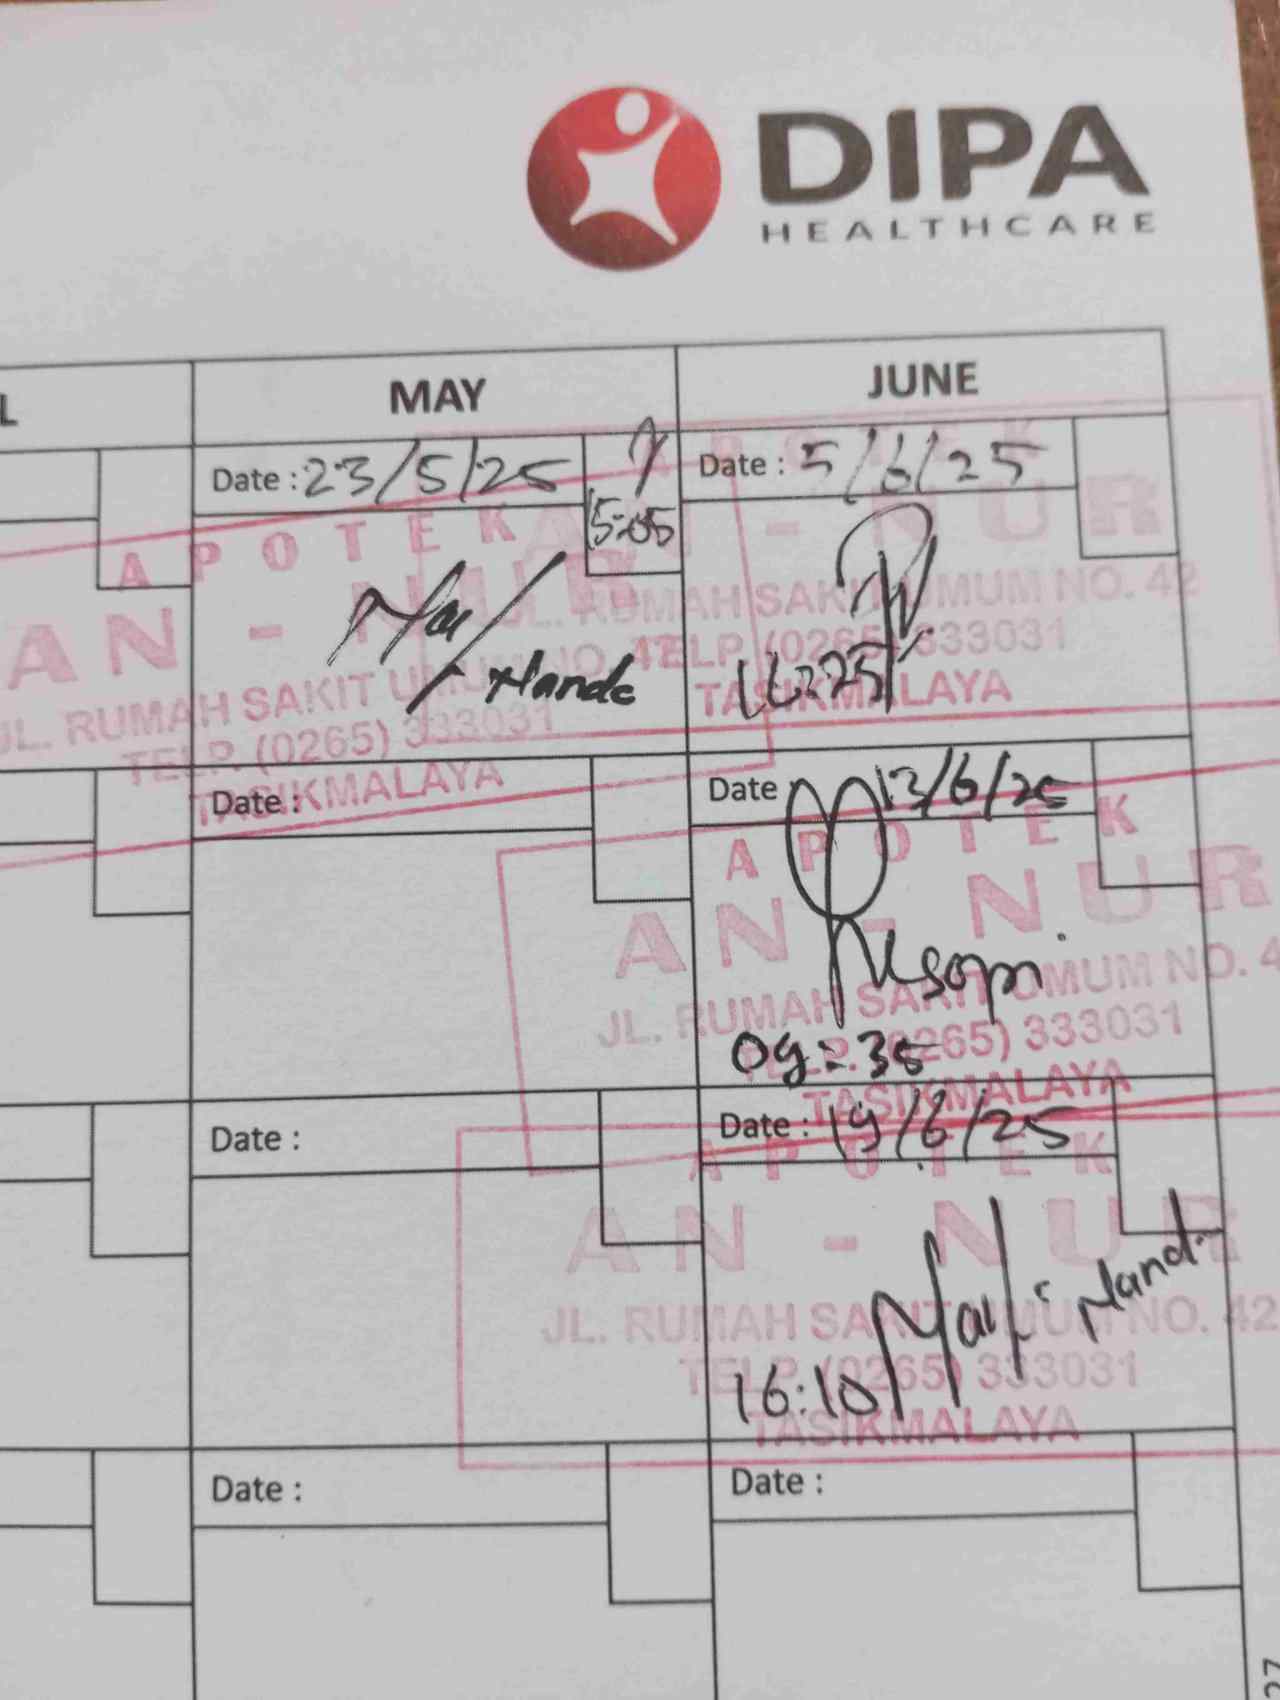 DIPA
HEALTHCARE
L
MAY
JUNE
Date : 23/5/25
15:05
APOTEK
AN - NUR
JL. RUMAH SAKIT UMUM NO. 42
TELP. (0265) 333031
TASIKMALAYA
Date : 5/6/25
APOTEK
AN - NUR
JL. RUMAH SAKIT UMUM NO. 42
TELP. (0265) 333031
TASIKMALAYA
Date :
Date 13/6/25
APOTEK
AN - NUR
JL. RUMAH SAKIT UMUM NO. 4
TELP. (0265) 333031
TASIKMALAYA
09:35
Date :
Date : 19/6/25
APOTEK
AN - NUR
JL. RUMAH SAKIT UMUM NO. 42
TELP. (0265) 333031
TASIKMALAYA
16:10
Date :
Date :